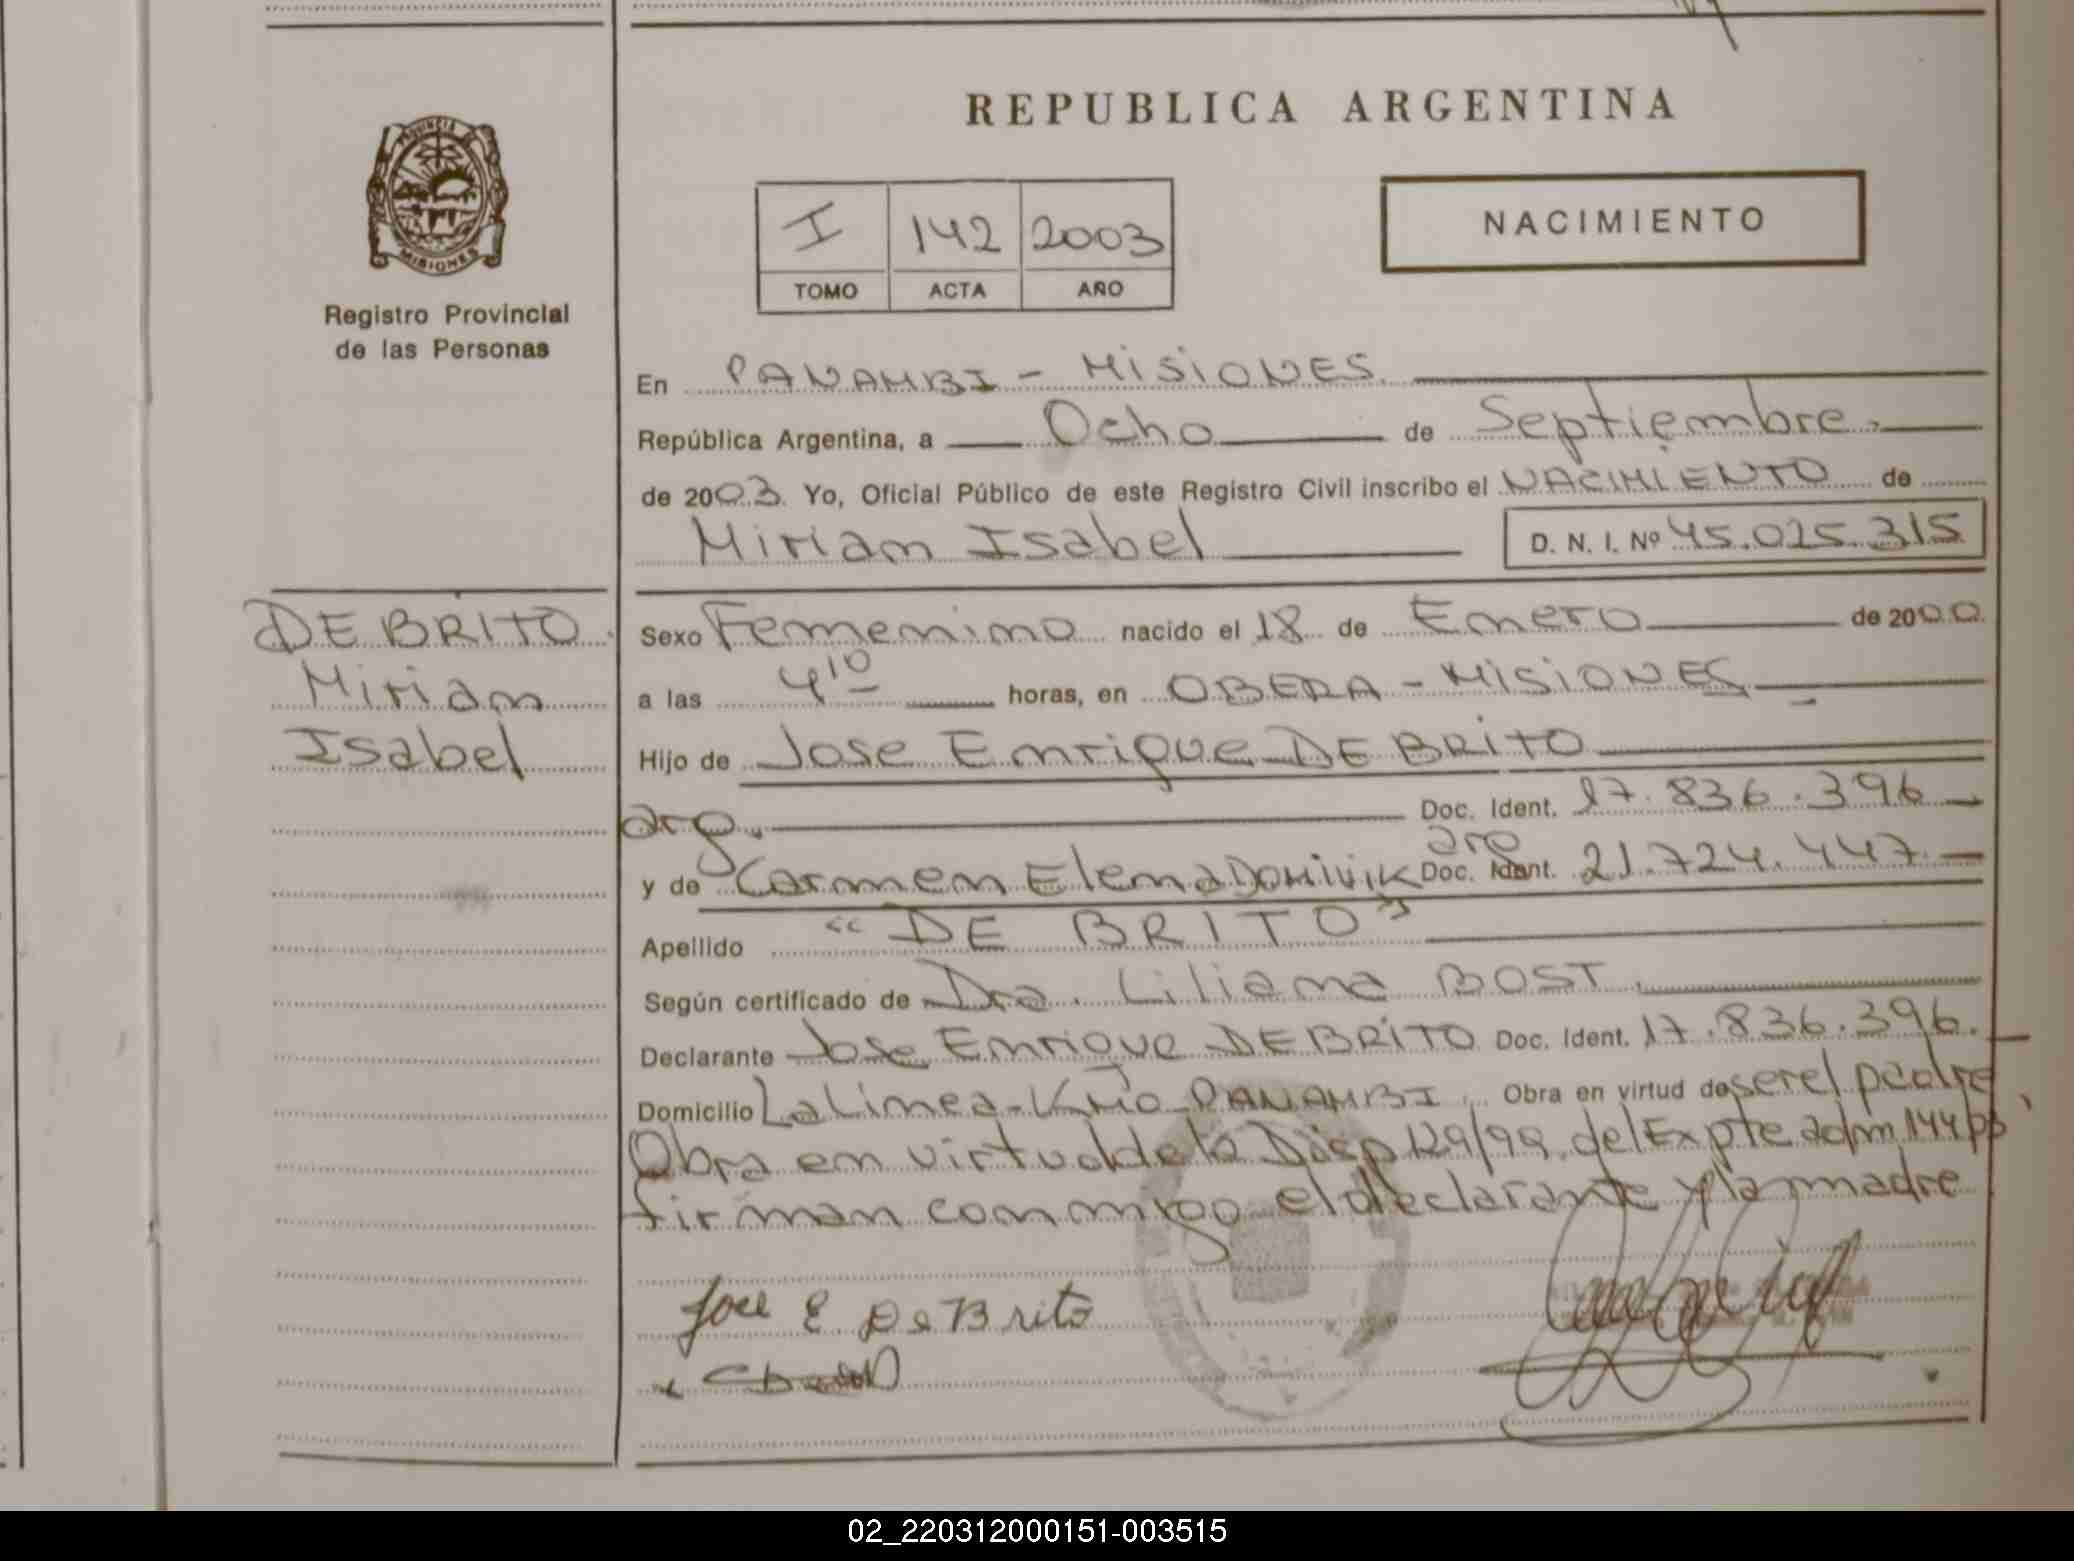 REPUBLICA ARGENTINA
PROVINCIA
MISIONES
Registro Provincial
de las Personas
I 142 2003
TOMO ACTA AÑO
NACIMIENTO
En PANAMBI - MISIONES
República Argentina, a Ocho de Septiembre
de 2003. Yo, Oficial Público de este Registro Civil inscribo el NACIMIENTO de
Miriam Isabel D. N. I. Nº 45.025.315
DE BRITO
Miriam
Isabel
Sexo Femenino nacido el 18 de Enero de 2000
a las 4 10 horas, en OBERA - MISIONES
Hijo de Jose Enrique DE BRITO
arg. Doc. Ident. 17.836.396
y de Carmen Elena DOMINIK arg Doc. Ident. 21.724.447
Apellido "DE BRITO"
Según certificado de Dra. Liliana BOST
Declarante Jose Enrique DE BRITO Doc. Ident. 17.836.396.
Domicilio La Linea - Km 10 PANAMBI Obra en virtud de ser el padre
Obra en virtud de la Disp 129/99 del Expte adm 144
firman conmigo el declarante y la madre
Jose E De Brito
02_220312000151-003515